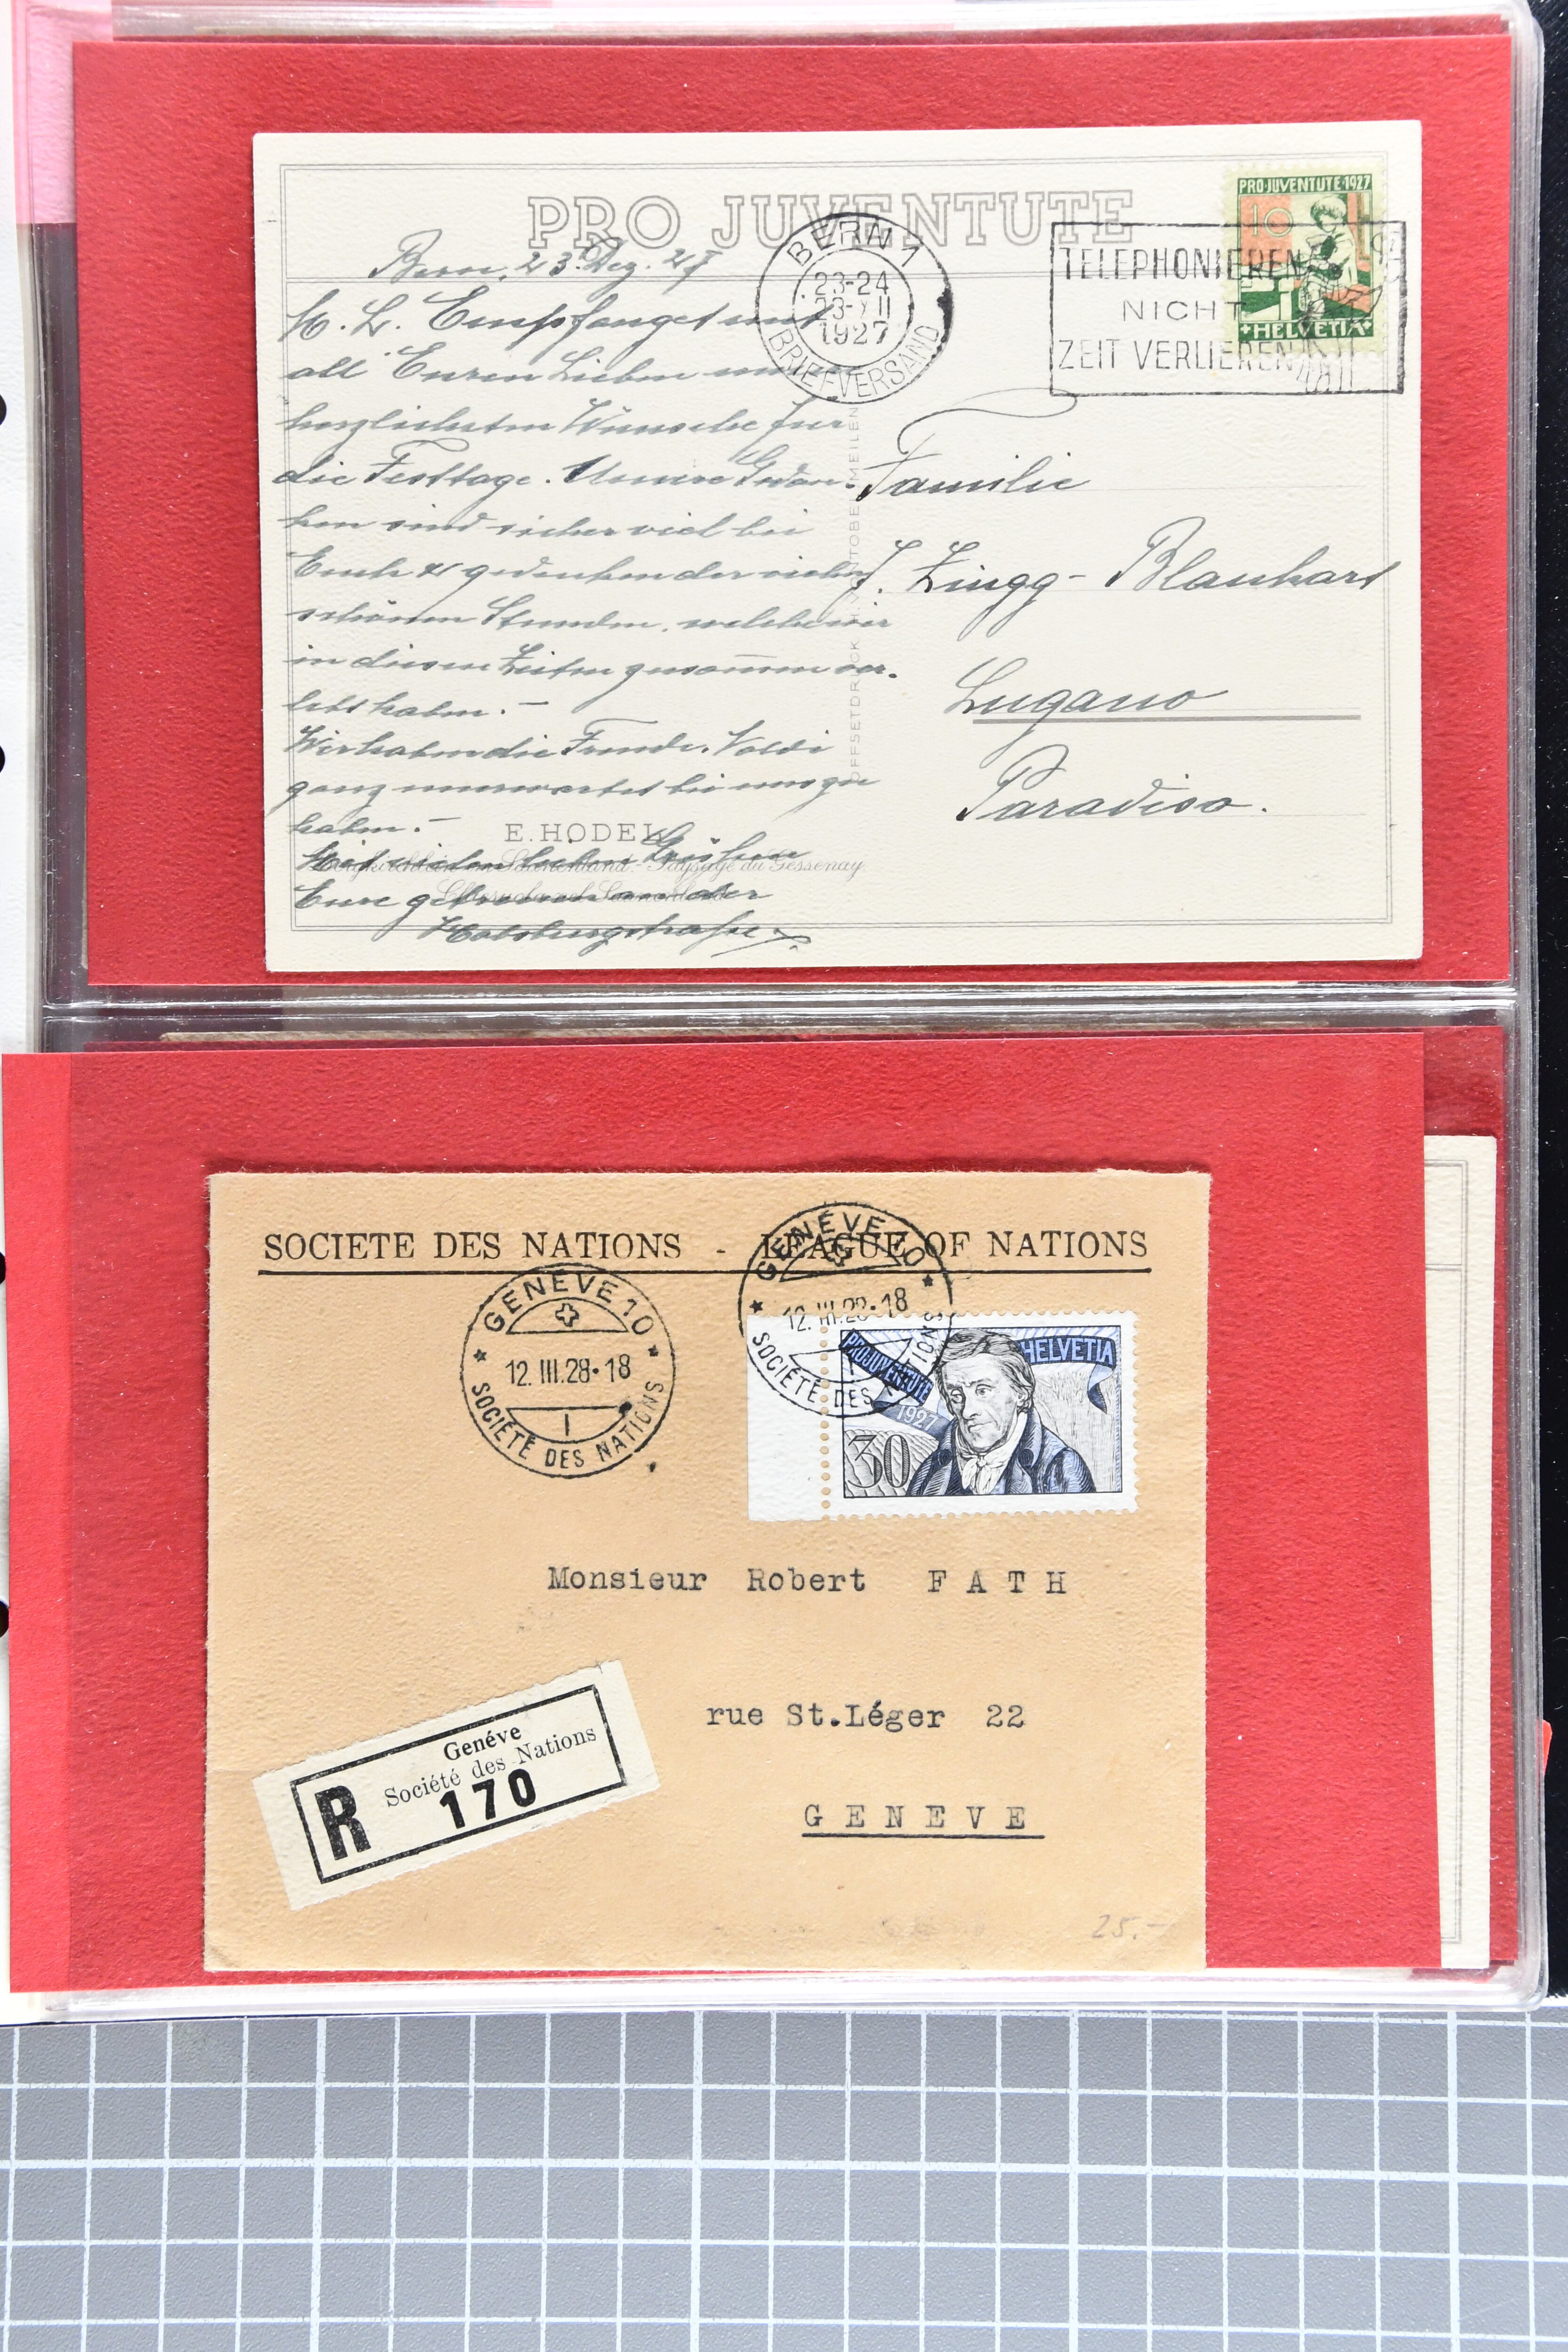 PRO JUVENTUTE
PRO JUVENTUTE 1927
10
HELVETIA
BERN 1
23-24
23-XII
1927
BRIEFVERSAND
TELEPHONIEREN
NICHT
ZEIT VERLIEREN
Bern, 23. Dez. 27
M. L. Empfanget mit
all' Euren Lieben unsere
herzlichsten Wünsche für
die Festtage. Unsere Gedan-
ken sind sicher viel bei
Euch & gedenken der vielen
schönen Stunden, welche wir
in diesen Zeiten zusammen ver-
lebt haben. -
Wir haben die Freude, Valdi
ganz unerwartet bei uns zu
haben. -
Mit vielen lieben Grüssen
Eure getreuen an der
Habsburgstrasse
Familie
J. Zingg - Blankart
Lugano
Paradiso.
OFFSETDRUCK MEILEN
E. HODEL
Saanenland. - Paysage du Gessenay
SOCIETE DES NATIONS - LEAGUE OF NATIONS
GENÈVE 10
12.III.28-18
SOCIÉTÉ DES NATIONS
GENÈVE 10
12.III.28-18
SOCIÉTÉ DES NATIONS
PRO JUVENTUTE
1927
HELVETIA
30
Monsieur Robert FATH
rue St.Léger 22
GENEVE
R
Genéve
Société des Nations
170
25.-